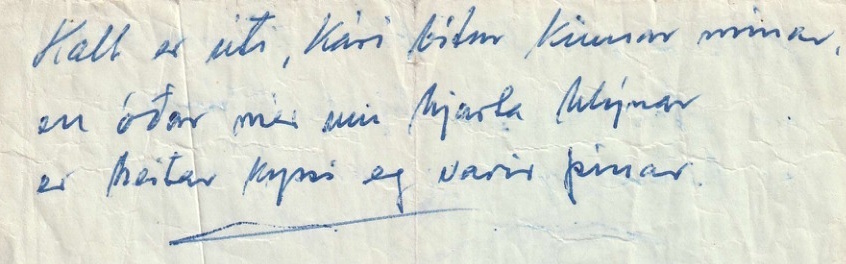 Kalt er úti, Kári bítur kinnar mínar,
en óðar mér um hjarta hlýnar
er heitar kyssi eg varir þínar.